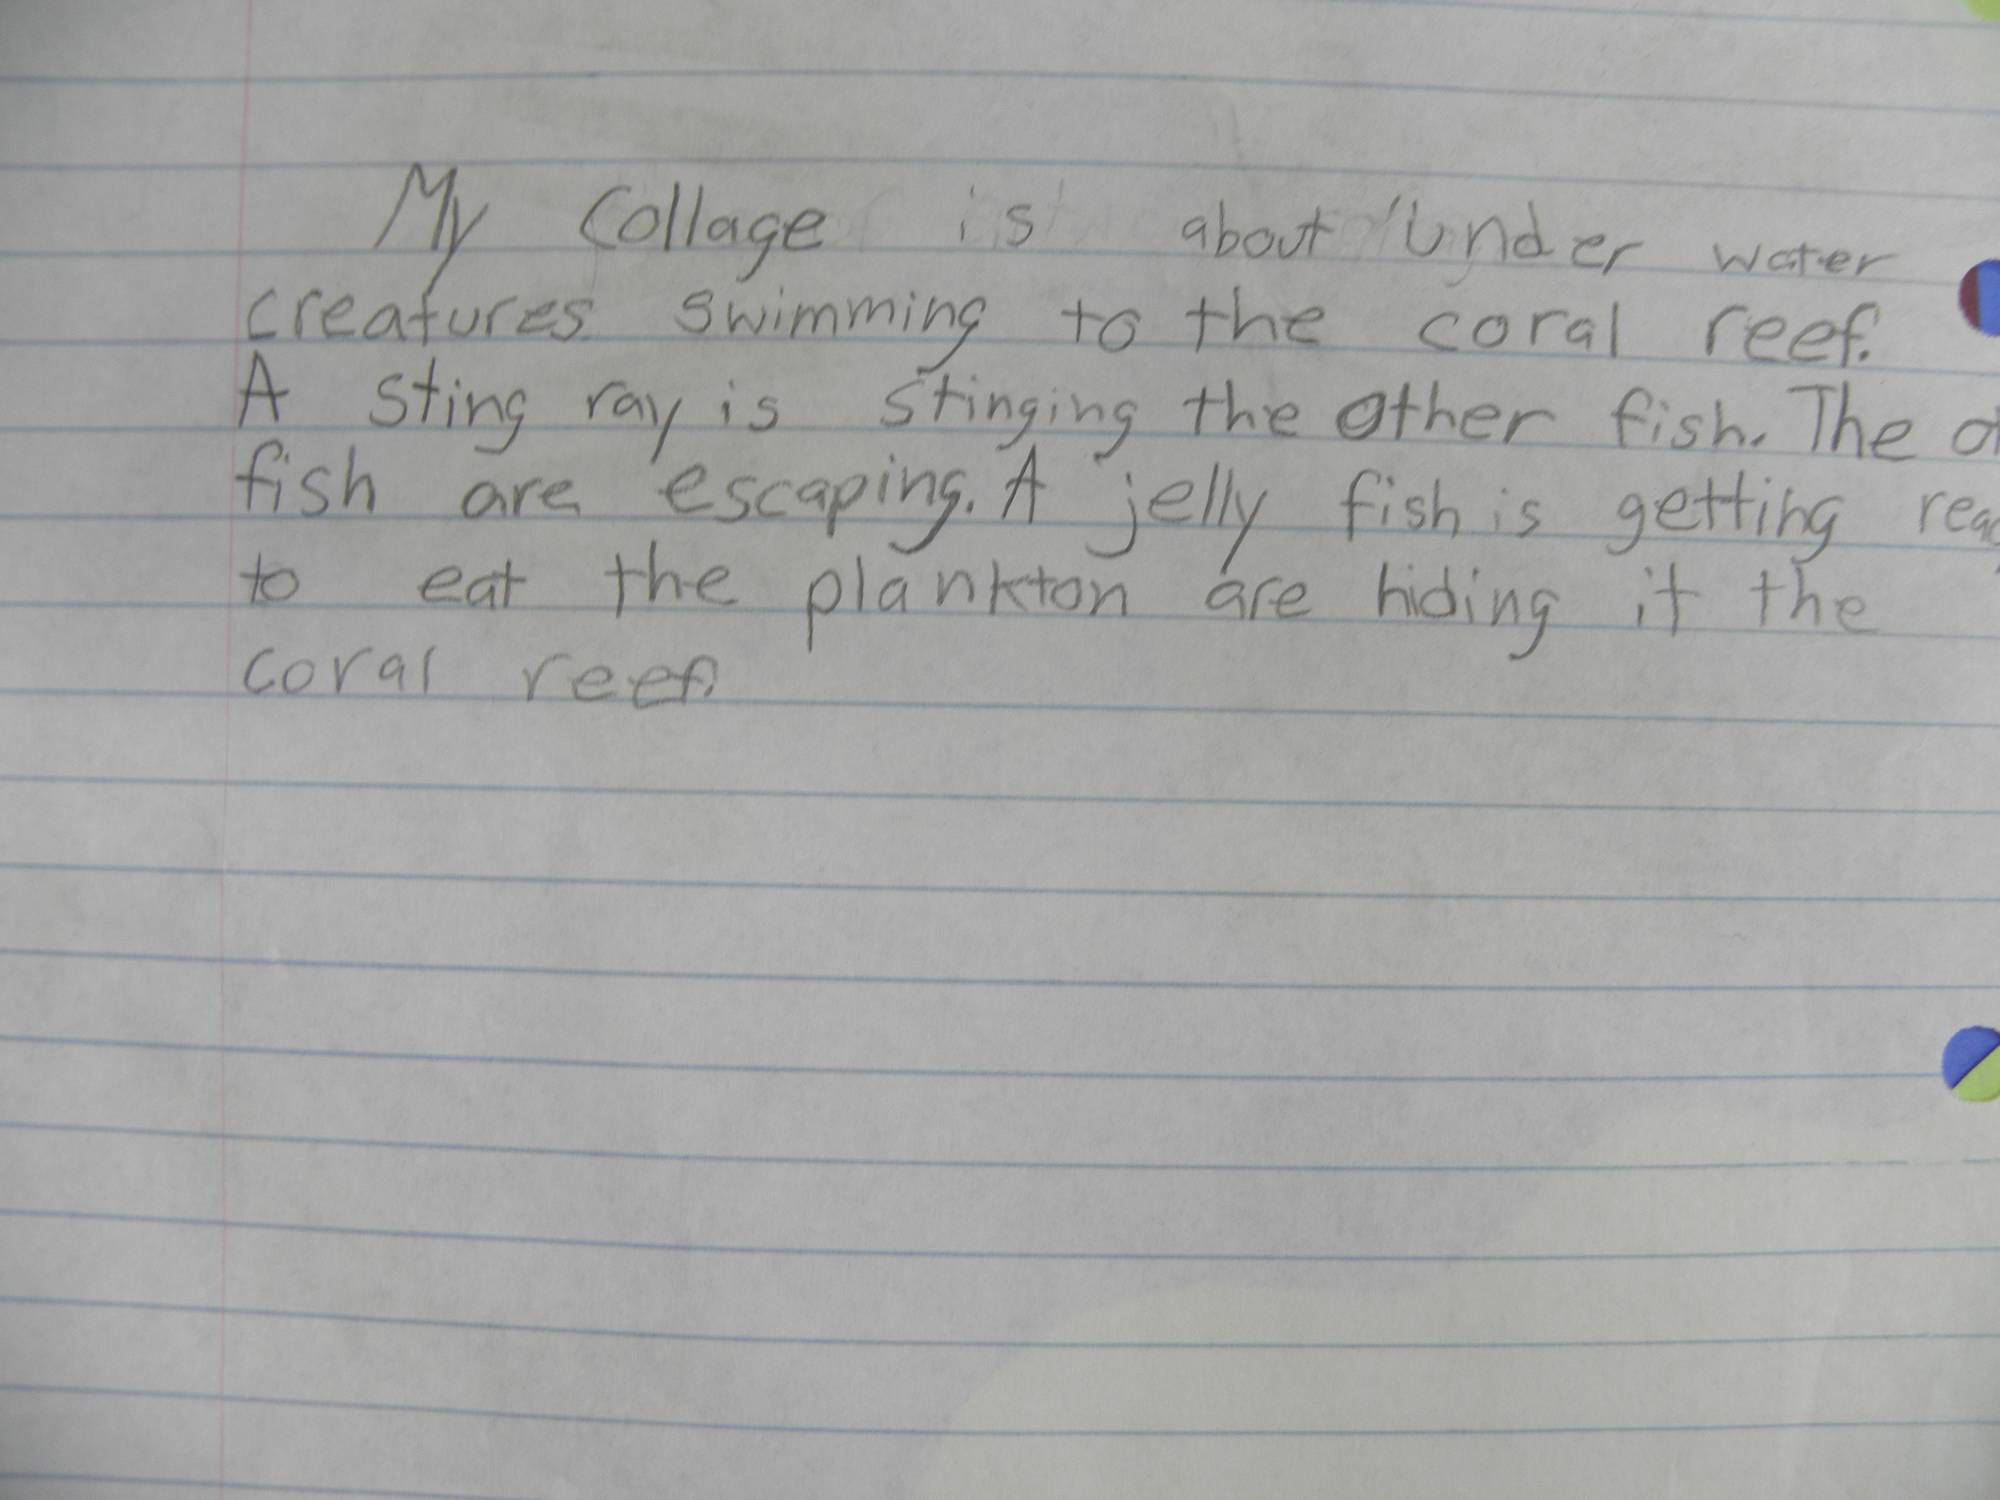 My Collage is about Under water
creatures swimming to the coral reef.
A sting ray is stinging the other fish. The
fish are escaping. A jelly fish is getting
to eat the plankton are hiding it the
coral reef.